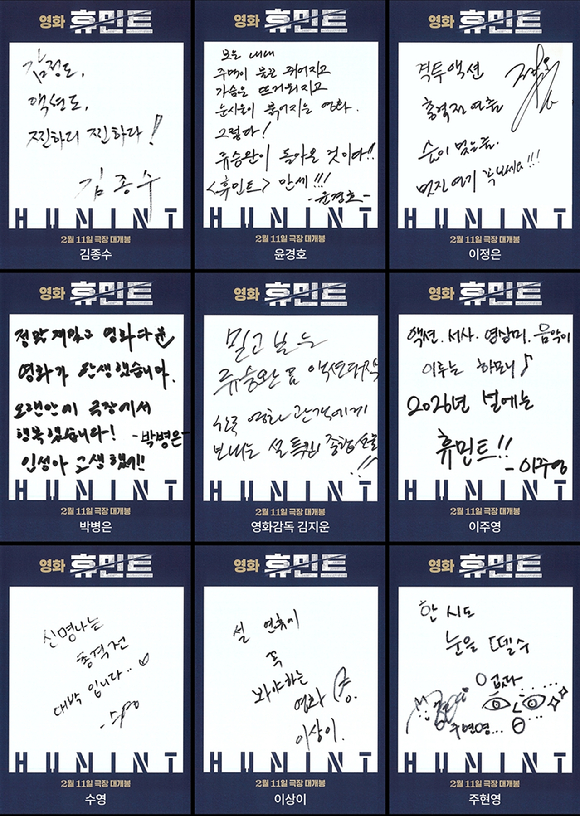 영화 휴민트
감정도,
액션도,
찐하디 찐하다!
김종수
HUMINT
2월 11일 극장 대개봉
김종수
영화 휴민트
보는 내내
주먹이 불끈 쥐어지고
가슴은 뜨거워지고
눈시울이 붉어지는 영화.
그렇다!
류승완이 돌아온 것이다!!
<휴민트> 만세!!!
-윤경호-
HUMINT
2월 11일 극장 대개봉
윤경호
영화 휴민트
격투액션
총격전
멋진 연기 꼭 보세요!!!
HUMINT
2월 11일 극장 대개봉
이정은
영화 휴민트
정말 재밌고 영화다운
영화가 탄생했습니다.
오랜만에 극장에서
행복했습니다! -박병은-
인성아 고생했어!!
HUMINT
2월 11일 극장 대개봉
박병은
영화 휴민트
믿고 보는
류승완 표 액션대작
한국 영화 관객에게
보내는 설 특집 종합선물
!!!
HUMINT
2월 11일 극장 대개봉
영화감독 김지운
영화 휴민트
액션. 서사. 영상미. 음악이
이루는 하모니♪
2026년 설에는
휴민트!!
-이주영
HUMINT
2월 11일 극장 대개봉
이주영
영화 휴민트
신명나는
총격전
대박 입니다..♡
HUMINT
2월 11일 극장 대개봉
수영
영화 휴민트
설 연휴에
꼭
봐야하는
영화
이상이.
HUMINT
2월 11일 극장 대개봉
이상이
영화 휴민트
한 시도
눈을 뗄 수
없다
주현영...
HUMINT
2월 11일 극장 대개봉
주현영